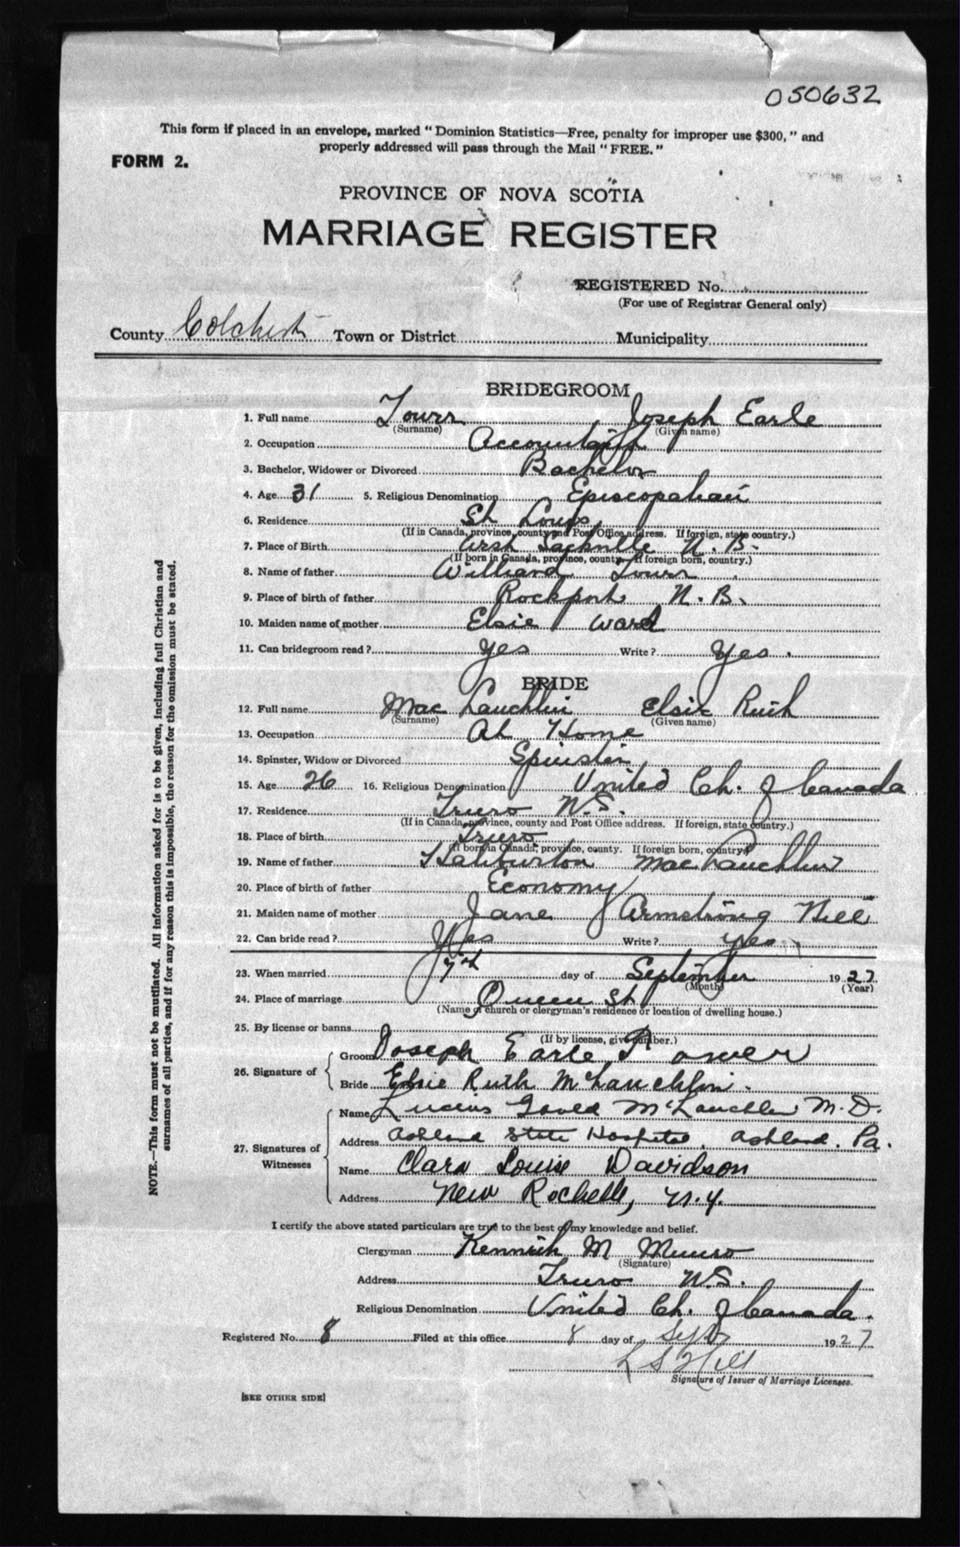 050632
This form if placed in an envelope, marked "Dominion Statistics—Free, penalty for improper use $300," and
properly addressed will pass through the Mail "FREE."
FORM 2.
PROVINCE OF NOVA SCOTIA
MARRIAGE REGISTER
REGISTERED No.
(For use of Registrar General only)
County Colchester Town or District Municipality
BRIDEGROOM
1. Full name Towse Joseph Earle
(Surname) (Given name)
2. Occupation Accountant
3. Bachelor, Widower or Divorced Bachelor
4. Age 31 5. Religious Denomination Episcopalian
6. Residence St Louis
(If in Canada, province, county and Post Office address. If foreign, state country.)
7. Place of Birth West Sackville N. B.
(If born in Canada, province, county. If foreign born, country.)
8. Name of father Williard
9. Place of birth of father Rockport N. B.
10. Maiden name of mother Elsie Ward
11. Can bridegroom read? Yes Write? Yes.
BRIDE
12. Full name Mac Lauchlin Elsie Ruth
(Surname) (Given name)
13. Occupation At Home
14. Spinster, Widow or Divorced Spinster
15. Age 26 16. Religious Denomination United Ch. of Canada
17. Residence Truro N.S.
(If in Canada, province, county and Post Office address. If foreign, state country.)
18. Place of birth Truro
(If born in Canada, province, county. If foreign born, country.)
19. Name of father Haliburton Mac Lauchlin
20. Place of birth of father Economy
21. Maiden name of mother Jane Armstrong Hill
22. Can bride read? Yes Write? Yes
23. When married 7th day of September 1927
(Month) (Year)
24. Place of marriage Queen St
(Name of church or clergyman's residence or location of dwelling house.)
25. By license or banns
(If by license, give number.)
26. Signature of Groom Joseph Earle
Bride Elsie Ruth McLauchlin.
27. Signatures of Witnesses Name Lucius Gould McLauchlin M.D.
Address Ashland State Hospital, Ashland. Pa.
Name Clara Louise Davidson
Address New Rochelle, N.Y.
I certify the above stated particulars are true to the best of my knowledge and belief.
Clergyman Kenneth M Munro
(Signature)
Address Truro N.S.
Religious Denomination United Ch. of Canada.
Registered No. 8 Filed at this office 8 day of Sept 1927
L S Hill
Signature of Issuer of Marriage Licenses.
[SEE OTHER SIDE]
NOTE.—This form must not be mutilated. All information asked for is to be given, including full Christian and
surnames of all parties, and if for any reason this is impossible, the reason for the omission must be stated.